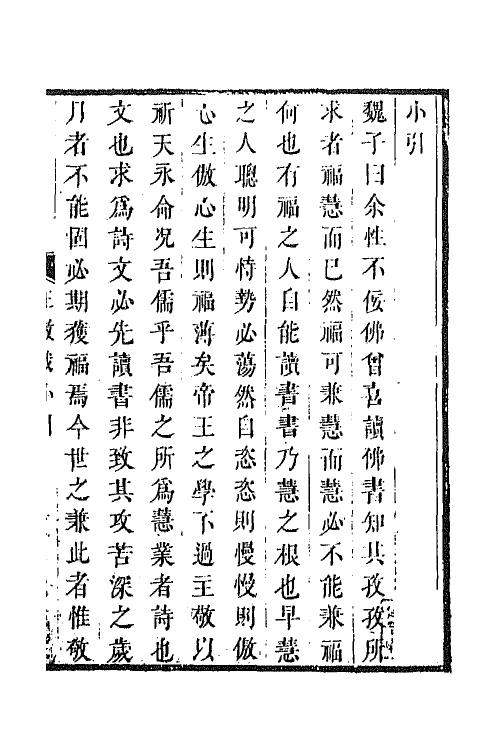 小引
魏子曰余性不佞佛曾喜讀佛書知其孜孜所
求者福慧而已然福可兼慧而慧必不能兼福
何也有福之人自能讀書書乃慧之根也早慧
之人聰明可恃勢必蕩然自恣恣則慢慢則倣
心生倣心生則福薄矣帝王之學不過主敬以
祈天永命况吾儒乎吾儒之所爲慧業者詩也
文也求爲詩文必先讀書非致其攻苦深之歲
月者不能固必期獲福焉今世之兼此者惟敬
小引